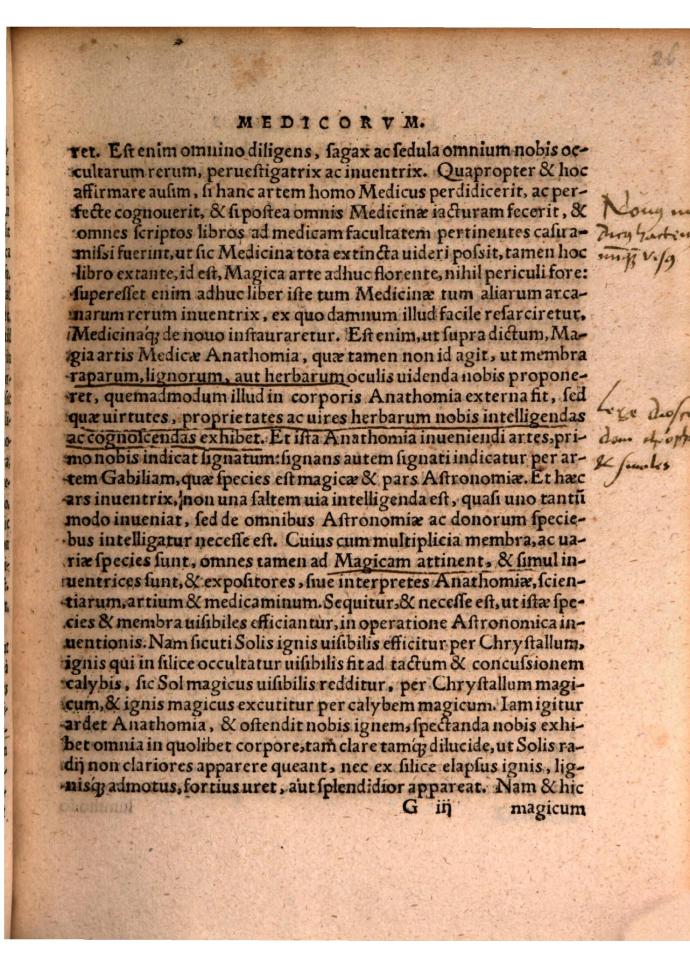 26
MEDICORVM.
ret. Est enim omnino diligens, sagax ac sedula omnium nobis oc-
cultarum rerum, peruestigatrix ac inuentrix. Quapropter & hoc
affirmare ausim, si hanc artem homo Medicus perdidicerit, ac per-
fecte cognouerit, & si postea omnis Medicinæ iacturam fecerit, &
omnes scriptos libros ad medicam facultatem pertinentes casu a-
missi fuerint, ut sic Medicina tota extincta uideri possit, tamen hoc
libro extante, id est, Magica arte adhuc florente, nihil periculi fore:
superesset enim adhuc liber iste tum Medicinæ tum aliarum arca-
narum rerum inuentrix, ex quo damnum illud facile resarciretur,
Medicinaq́; de nouo instauraretur. Est enim, ut supra dictum, Ma-
gia artis Medicæ Anathomia, quæ tamen non id agit, ut membra
raparum, lignorum, aut herbarum oculis uidenda nobis propone-
ret, quemadmodum illud in corporis Anathomia externa fit, sed
quæ uirtutes, proprietates ac uires herbarum nobis intelligendas
ac cognoscendas exhibet. Et ista Anathomia inueniendi artes, pri-
mo nobis indicat signatum: signans autem signati indicatur per ar-
tem Gabiliam, quæ species est magicæ & pars Astronomiæ. Et hæc
ars inuentrix, non una saltem uia intelligenda est, quasi uno tantū
modo inueniat, sed de omnibus Astronomiæ ac donorum specie-
bus intelligatur necesse est. Cuius cum multiplicia membra, ac ua-
riæ species sunt, omnes tamen ad Magicam attinent, & simul in-
uentrices sunt, & expositores, siue interpretes Anathomiæ, scien-
tiarum, artium & medicaminum. Sequitur, & necesse est, ut istæ spe-
cies & membra uisibiles efficiantur, in operatione Astronomica in-
uentionis. Nam sicuti Solis ignis uisibilis efficitur per Chrystallum,
ignis qui in silice occultatur uisibilis fit ad tactum & concussionem
calybis, sic Sol magicus uisibilis redditur, per Chrystallum magi-
cum, & ignis magicus excutitur per calybem magicum. Iam igitur
ardet Anathomia, & ostendit nobis ignem, spectanda nobis exhi-
bet omnia in quolibet corpore, tam clare tamq́; dilucide, ut Solis ra-
dij non clariores apparere queant, nec ex silice elapsus ignis, lig-
nisq́; admotus, fortius uret, aut splendidior appareat. Nam & hic
G iij magicum
& similes